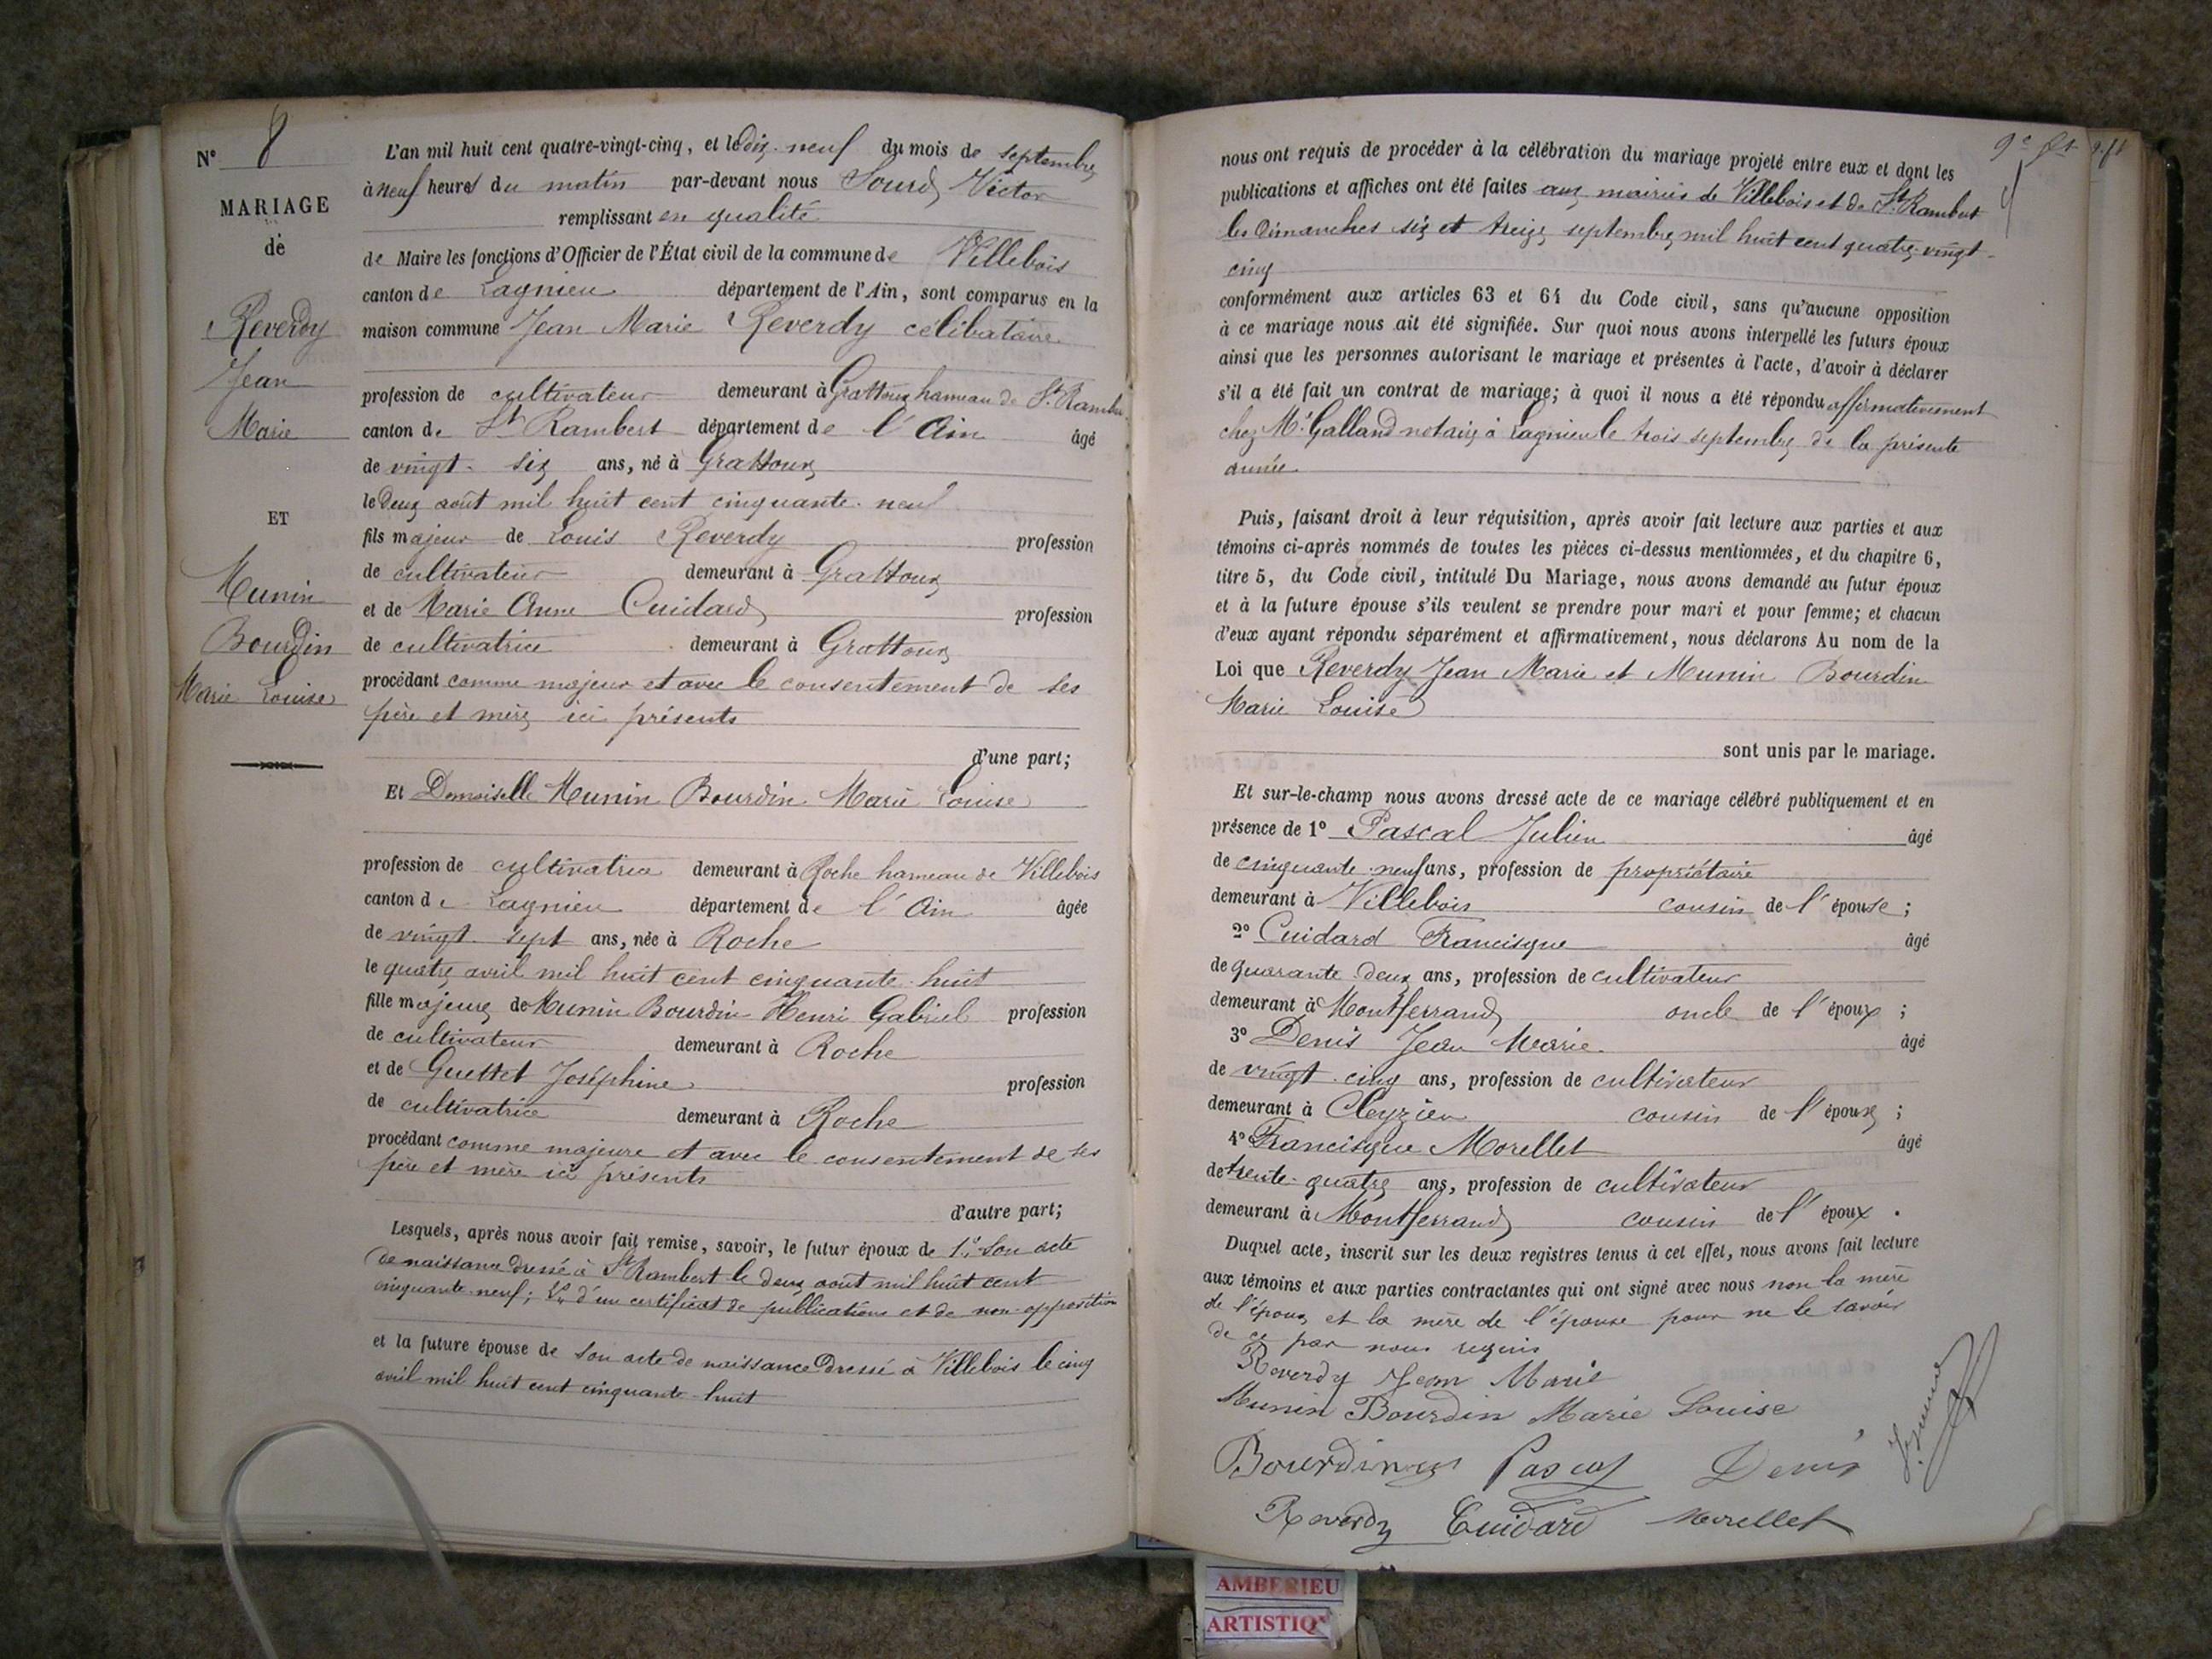 N° 8
MARIAGE
de
Reverdy
Jean
Marie
ET
Munin
Bourdin
Marie Louise
L'an mil huit cent quatre-vingt-cinq, et le dix-neuf du mois de septembre
à neuf heures du matin par-devant nous Sourd Victor
remplissant en qualité
de Maire les fonctions d'Officier de l'État civil de la commune de Villebois
canton de Lagnieu département de l'Ain, sont comparus en la
maison commune Jean Marie Reverdy célibataire
profession de cultivateur demeurant à Grattoux hameau de St Rambert
canton de St Rambert département de l'Ain âgé
de vingt-six ans, né à Grattoux
le deux août mil huit cent cinquante-neuf
fils majeur de Louis Reverdy profession
de cultivateur demeurant à Grattoux
et de Marie Anne Cuidard profession
de cultivatrice demeurant à Grattoux
procédant comme majeur et avec le consentement de ses
père et mère ici présents
d'une part;
Et Demoiselle Munin Bourdin Marie Louise
profession de cultivatrice demeurant à Roche hameau de Villebois
canton de Lagnieu département de l'Ain âgée
de vingt-sept ans, née à Roche
le quatre avril mil huit cent cinquante-huit
fille majeure de Munin Bourdin Henri Gabriel profession
de cultivateur demeurant à Roche
et de Guettet Joséphine profession
de cultivatrice demeurant à Roche
procédant comme majeure et avec le consentement de ses
père et mère ici présents
d'autre part;
Lesquels, après nous avoir fait remise, savoir, le futur époux de 1° son acte
de naissance dressé à St Rambert le deux août mil huit cent
cinquante-neuf; d'un certificat de publications et de non-opposition
et la future épouse de son acte de naissance dressé à Villebois le cinq
avril mil huit cent cinquante-huit
nous ont requis de procéder à la célébration du mariage projeté entre eux et dont les
publications et affiches ont été faites aux mairies de Villebois et de St Rambert
les Dimanches six et treize septembre mil huit cent quatre-vingt-
cinq
conformément aux articles 63 et 64 du Code civil, sans qu'aucune opposition
à ce mariage nous ait été signifiée. Sur quoi nous avons interpellé les futurs époux
ainsi que les personnes autorisant le mariage et présentes à l'acte, d'avoir à déclarer
s'il a été fait un contrat de mariage; à quoi il nous a été répondu affirmativement
chez Me Galland notaire à Lagnieu le trois septembre de la présente
année
Puis, faisant droit à leur réquisition, après avoir fait lecture aux parties et aux
témoins ci-après nommés de toutes les pièces ci-dessus mentionnées, et du chapitre 6,
titre 5, du Code civil, intitulé Du Mariage, nous avons demandé au futur époux
et à la future épouse s'ils veulent se prendre pour mari et pour femme; et chacun
d'eux ayant répondu séparément et affirmativement, nous déclarons Au nom de la
Loi que Reverdy Jean Marie et Munin Bourdin
Marie Louise
sont unis par le mariage.
Et sur-le-champ nous avons dressé acte de ce mariage célébré publiquement et en
présence de 1° Pascal Julien âgé
de cinquante-neuf ans, profession de propriétaire
demeurant à Villebois cousin de l'épouse;
2° Cuidard Francisque âgé
de quarante-deux ans, profession de cultivateur
demeurant à Montferrand oncle de l'époux;
3° Denis Jean Marie âgé
de vingt-cinq ans, profession de cultivateur
demeurant à Cleyzieu cousin de l'époux;
4° Francisque Morellet âgé
de trente-quatre ans, profession de cultivateur
demeurant à Montferrand cousin de l'époux.
Duquel acte, inscrit sur les deux registres tenus à cet effet, nous avons fait lecture
aux témoins et aux parties contractantes qui ont signé avec nous non la mère
de l'époux et la mère de l'épouse pour ne le savoir
de ce par nous requis
Reverdy Jean Marie
Munin Bourdin Marie Louise
Pascal Denis
Reverdy Cuidard Morellet
AMBERIEU
ARTISTIQ